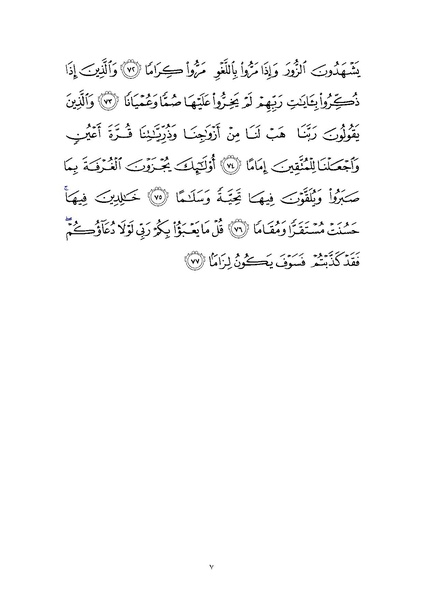 يَشۡهَدُونَ ٱلزُّورَ وَإِذَا مَرُّواْ بِٱللَّغۡوِ مَرُّواْ كِرَامٗا ٧٢ وَٱلَّذِينَ إِذَا
ذُكِّرُواْ بِـَٔايَٰتِ رَبِّهِمۡ لَمۡ يَخِرُّواْ عَلَيۡهَا صُمّٗا وَعُمۡيَانٗا ٧٣ وَٱلَّذِينَ
يَقُولُونَ رَبَّنَا هَبۡ لَنَا مِنۡ أَزۡوَٰجِنَا وَذُرِّيَّٰتِنَا قُرَّةَ أَعۡيُنٖ
وَٱجۡعَلۡنَا لِلۡمُتَّقِينَ إِمَامًا ٧٤ أُوْلَٰٓئِكَ يُجۡزَوۡنَ ٱلۡغُرۡفَةَ بِمَا
صَبَرُواْ وَيُلَقَّوۡنَ فِيهَا تَحِيَّةٗ وَسَلَٰمًا ٧٥ خَٰلِدِينَ فِيهَاۚ
حَسُنَتۡ مُسۡتَقَرّٗا وَمُقَامٗا ٧٦ قُلۡ مَا يَعۡبَؤُاْ بِكُمۡ رَبِّي لَوۡلَا دُعَآؤُكُمۡۖ
فَقَدۡ كَذَّبۡتُمۡ فَسَوۡفَ يَكُونُ لِزَامَۢا ٧٧
٧